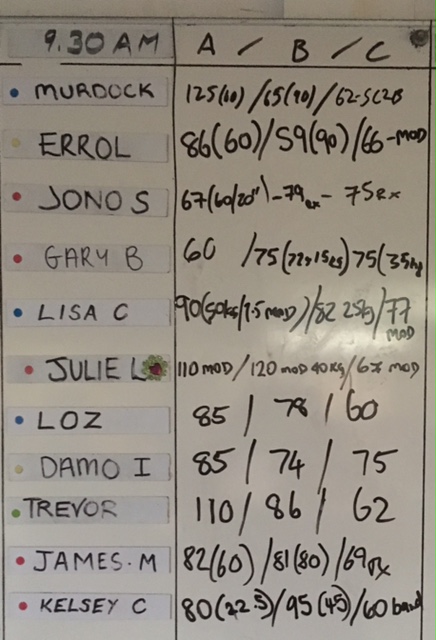 9.30 AM A / B / C
MURDOCK 125(60) /65(90) /62-SC2B
ERROL 86(60)/59(90)/66-MOD
JONO S 67(60/20")-79RX- 75RX
GARY B 60 /75( 75(35kg
LISA C 90(50kg/7.5 MOD)/82 25kg/77 MOD
JULIE L 110 MOD/120 MOD 40kg/67 MOD
LOZ 85 / 78 / 60
DAMO I 85 / 74 / 75
TREVOR 110/ 86 / 62
JAMES.M 82(60)/81(80)/69RX
KELSEY C 80(22.5)/95(45)/60 band